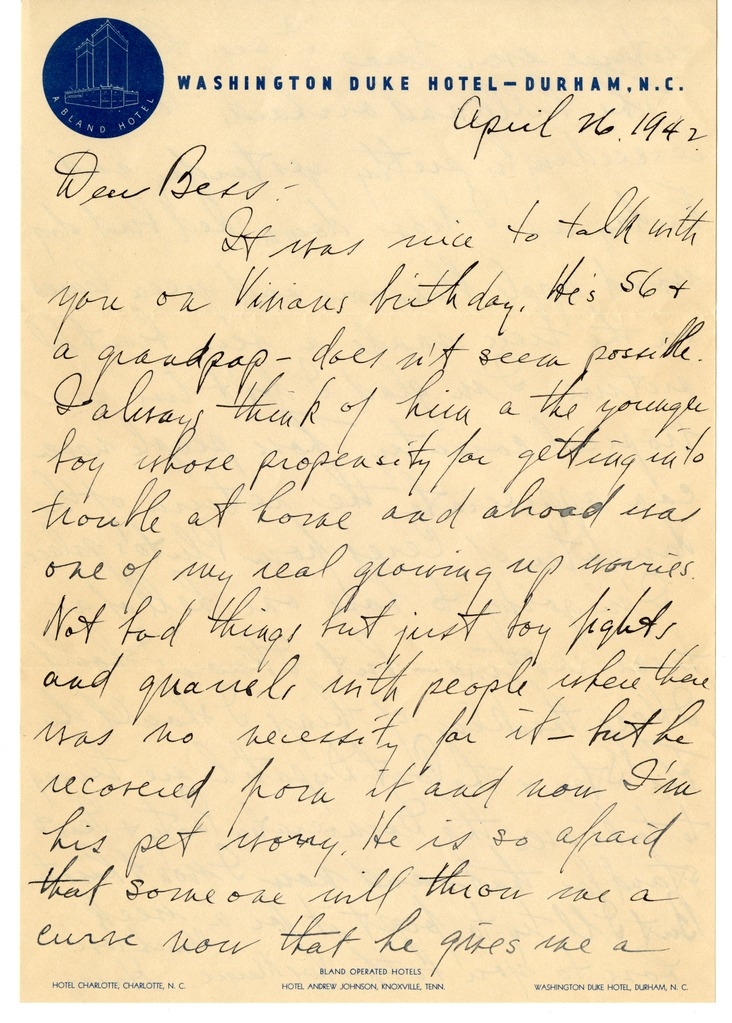 A BLAND HOTEL
WASHINGTON DUKE HOTEL—DURHAM, N.C.
April 26, 1942
Dear Bess:-
It was nice to talk with
you on Vivians birthday. He's 56 +
a grandpop - does n't seem possible.
I always think of him a the younger
boy whose propensity for getting into
trouble at home and abroad was
one of my real growing up worries.
Not bad things but just boy fights
and quarrels with people where there
was no necessity for it - but he
recovered from it and now I'm
his pet worry. He is so afraid
that someone will throw me a
curve now that he gives me a
BLAND OPERATED HOTELS
HOTEL CHARLOTTE, CHARLOTTE, N. C. HOTEL ANDREW JOHNSON, KNOXVILLE, TENN. WASHINGTON DUKE HOTEL, DURHAM, N. C.